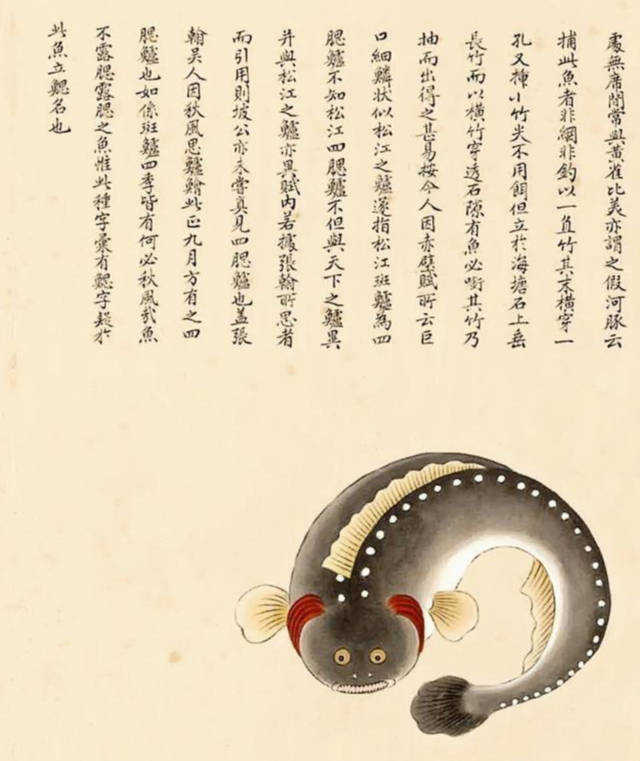 處無席間常與黃雀比美亦謂之假河豚云
捕此魚者非網非釣以一直竹其末橫穿一
孔又揷小竹尖不用餌但立於海塘石上垂
長竹而以橫竹穿透石隙有魚必啣其竹乃
抽而出得之甚易按今人因赤壁賦所云巨
口細鱗狀似松江之鱸遂指松江斑鱸為四
腮鱸不知松江四腮鱸不但與天下之鱸異
并與松江之鱸亦異賦内若據張翰所思者
而引用則坡公亦未嘗真見四腮鱸也蓋張
翰吳人因秋風思鱸翰此正九月方有之四
腮鱸也如係斑鱸四季皆有何必秋風哉魚
不露腮露腮之魚惟此種字彙有鰓字疑於
此魚立鰓名也